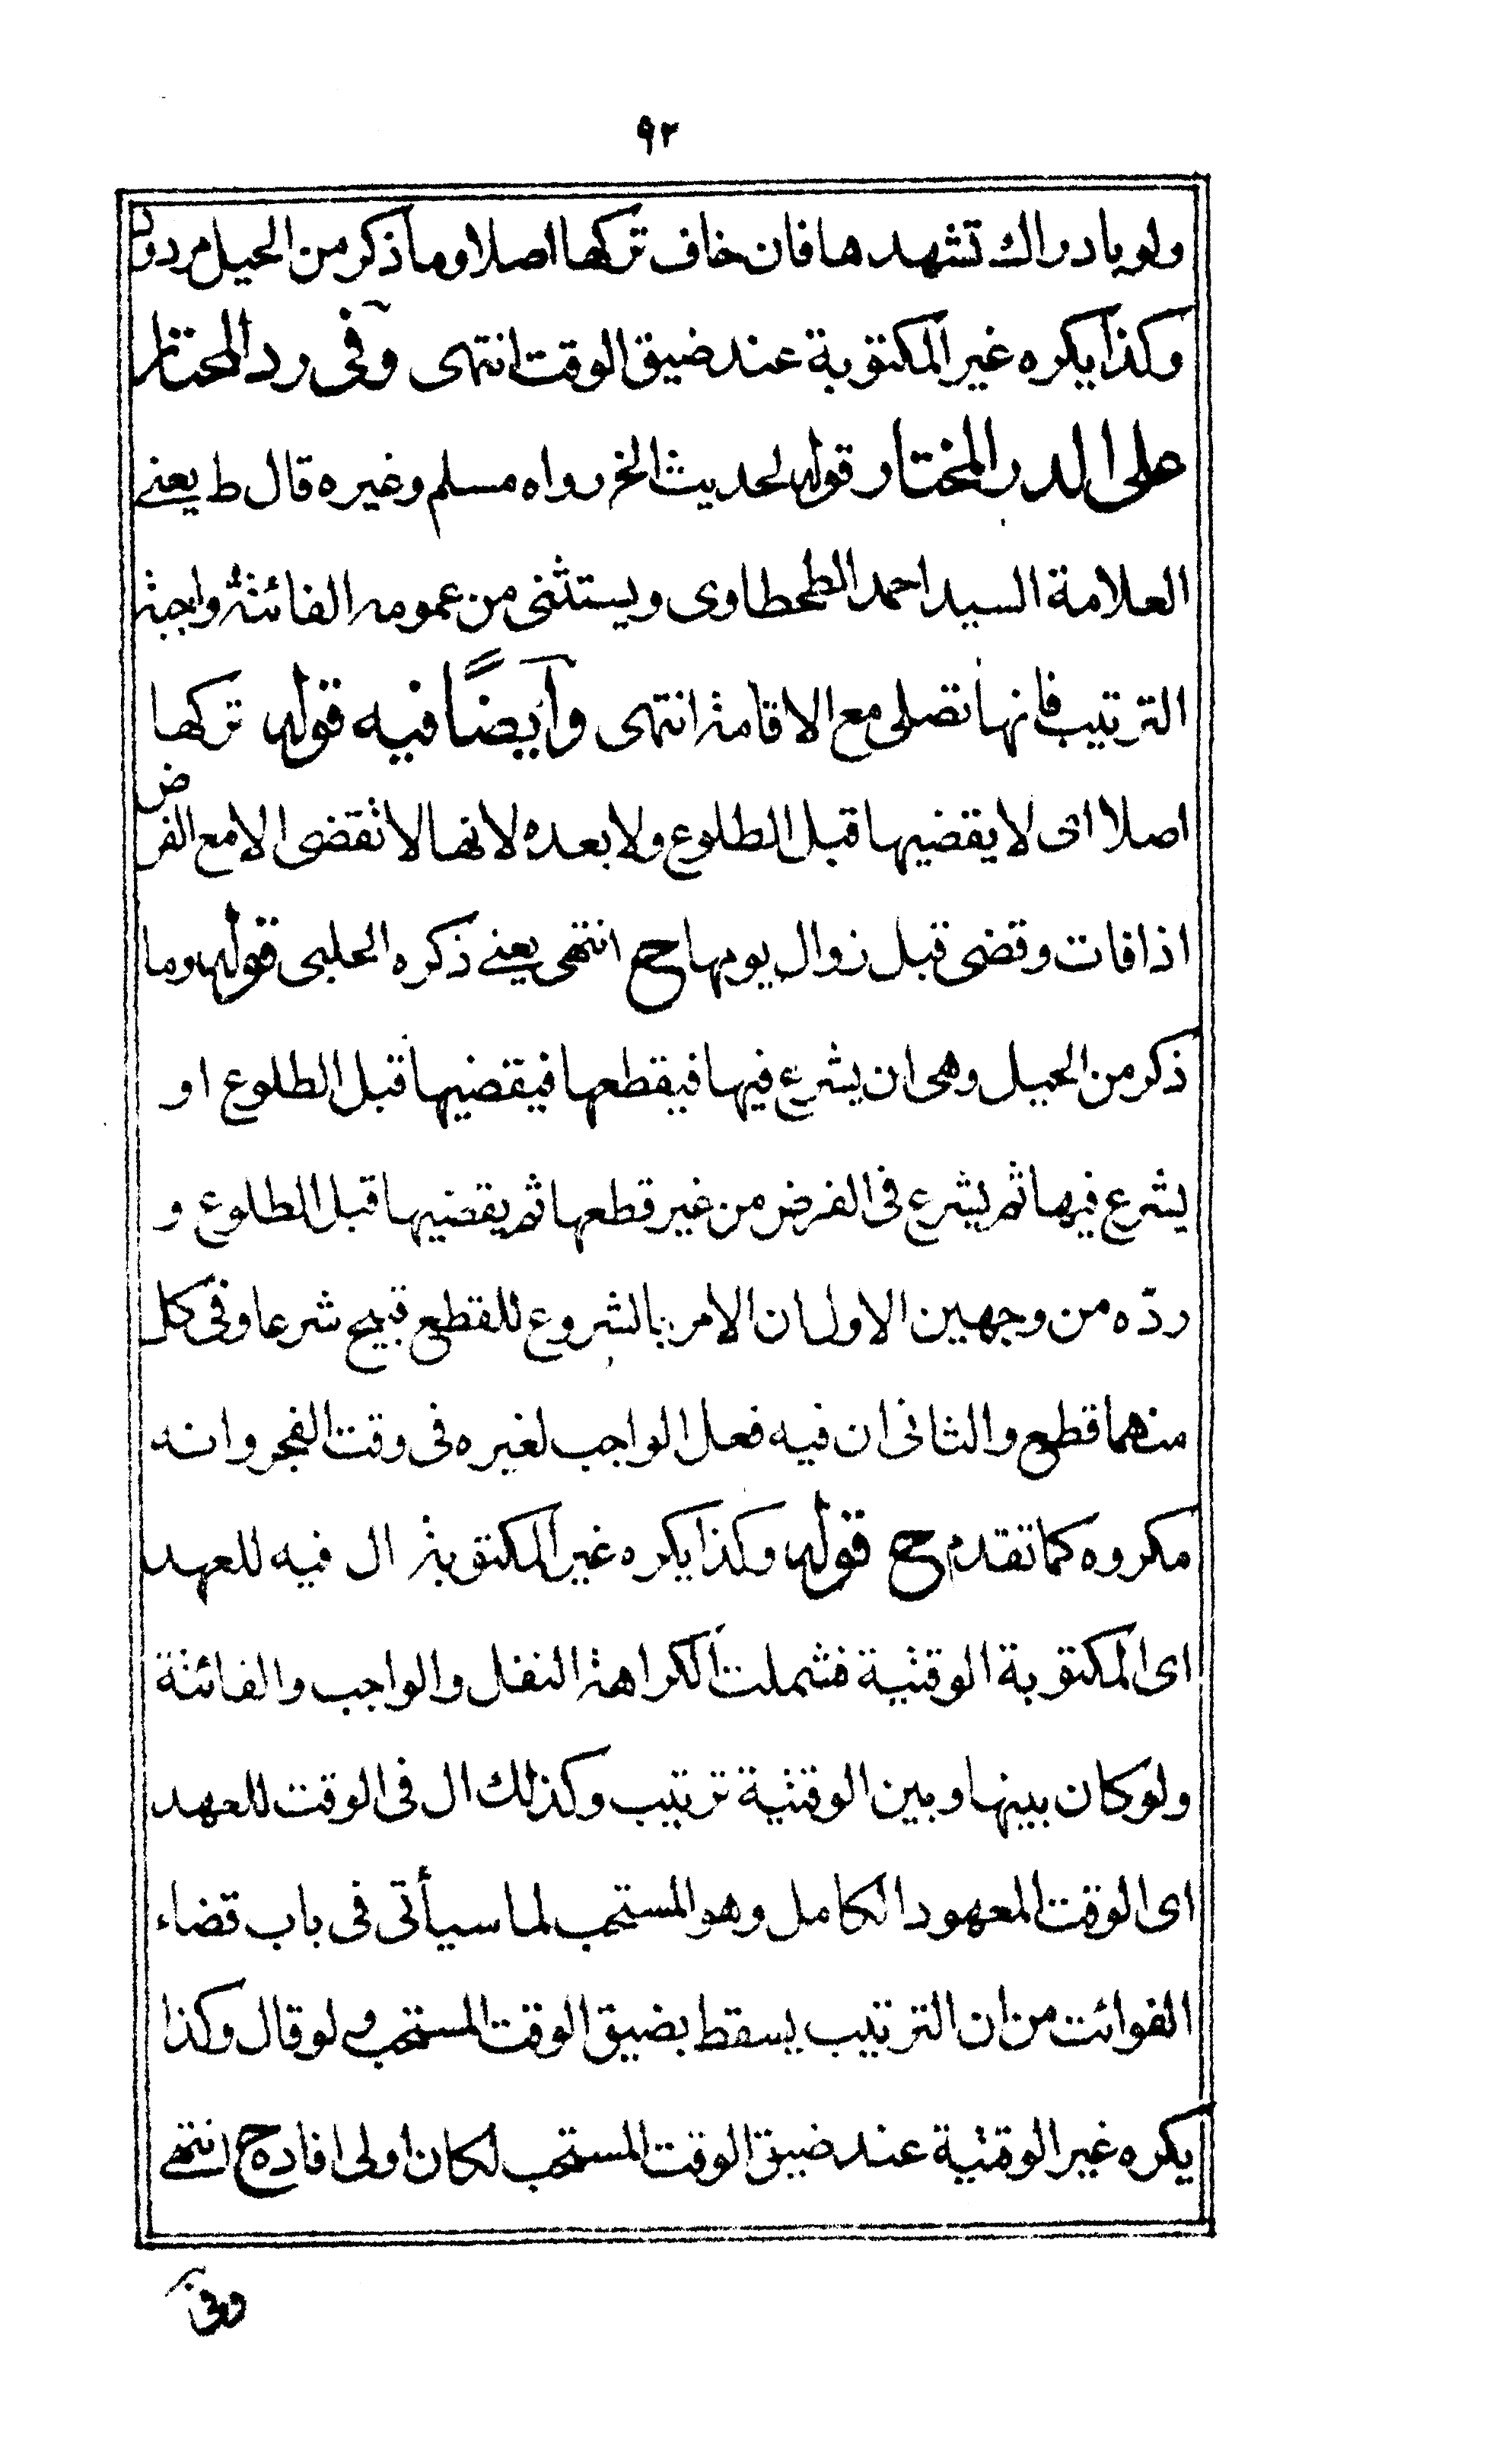 ٩٢
ولو بادراك تشهدها فان خاف تركها اصلا وما ذكر من الحيل مردود
وكذا يكره غير المكتوبة عند ضيق الوقت انتهى وفى رد المحتار
على الدر المختار قوله لحديث الخ رواه مسلم وغيره قال ط يعنے
العلامة السيد احمد الطحطاوى ويستثنى من عمومه الفائتة واجبة
الترتيب فانها تصلى مع الاقامة انتهى وايضًا فيه قوله تركها
اصلا اى لا يقضيها قبل الطلوع ولا بعده لانها لا تقضى الا مع الفرض
اذا فات وقضى قبل زوال يومها ح انتهى يعنے ذكره الحلبى قوله وما
ذكر من الحيل وهى ان يشرع فيها فيقطعها فيقضيها قبل الطلوع او
يشرع فيها ثم يشرع فى الفرض من غير قطعها ثم يقضيها قبل الطلوع و
ردّه من وجهين الاول ان الامر بالشروع للقطع قبيح شرعا وفى كل
منهما قطع والثانى ان فيه فعل الواجب لغيره فى وقت الفجر وانه
مكروه كما تقدم ح قوله وكذا يكره غير المكتوبة ال فيه للعهد
اى المكتوبة الوقتية فشملت الكراهة النفل والواجب والفائتة
ولو كان بينها وبين الوقتية ترتيب وكذلك ال فى الوقت للعهد
اى الوقت المعهود الكامل وهو المستحب لما سيأتى فى باب قضاء
الفوائت من ان الترتيب يسقط بضيق الوقت المستحب ولو قال وكذا
يكره غير الوقتية عند ضيق الوقت المستحب لكان اولى افاده ح انتهے
وفى